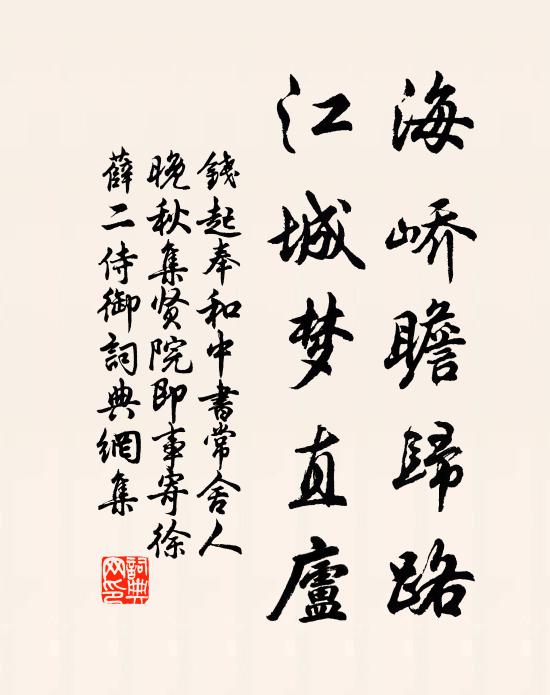 海峤瞻歸路
江城梦直廬
錢起奉和中書常舍人
晚秋集贤院即事寄徐
薛二侍御詞典網集
詞典
网印